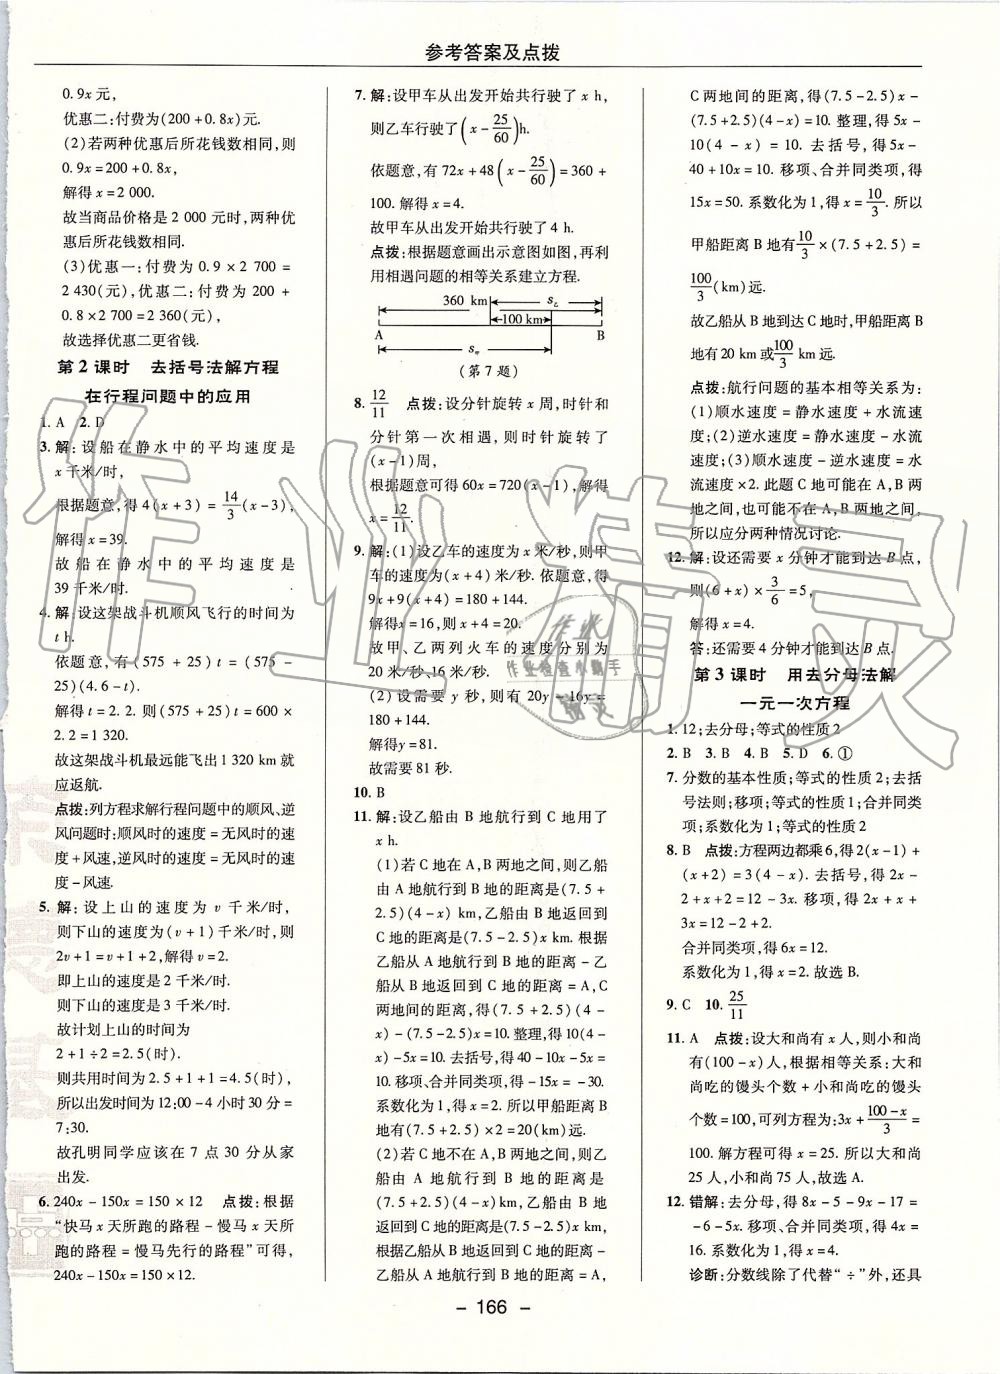 参考答案及点拨
0.9x元,
优惠二:付费为(200+0.8x)元.
(2)若两种优惠后所花钱数相同,则
0.9x=200+0.8x,
解得x=2 000.
故当商品价格是2 000元时,两种优
惠后所花钱数相同.
(3)优惠一:付费为0.9×2 700=
2 430(元),优惠二:付费为200+
0.8×2 700=2 360(元),
故选择优惠二更省钱.
第2课时 去括号法解方程
在行程问题中的应用
1. A 2. D
3. 解:设船在静水中的平均速度是
x千米/时,
根据题意,得4(x+3)=14/3(x-3),
解得x=39.
故船在静水中的平均速度是
39千米/时.
4. 解:设这架战斗机顺风飞行的时间为
t h.
依题意,有(575+25)t=(575-
25)(4.6-t).
解得t=2.2.则(575+25)t=600×
2.2=1 320.
故这架战斗机最远能飞出1 320 km就
应返航.
点拨:列方程求解行程问题中的顺风、逆
风问题时:顺风时的速度=无风时的速
度+风速,逆风时的速度=无风时的速
度-风速.
5. 解:设上山的速度为v千米/时,
则下山的速度为(v+1)千米/时,则
2v+1=v+1+2,解得v=2.
即上山的速度是2千米/时.
则下山的速度是3千米/时.
故计划上山的时间为
2+1÷2=2.5(时).
则共用时间为2.5+1+1=4.5(时),
所以出发时间为12:00-4小时30分=
7:30.
故孔明同学应该在7点30分从家
出发.
6. 240x-150x=150×12 点拨:根据
“快马x天所跑的路程-慢马x天所
跑的路程=慢马先行的路程”可得,
240x-150x=150×12.
7. 解:设甲车从出发开始共行驶了x h,
则乙车行驶了(x-25/60)h.
依题意,有72x+48(x-25/60)=360+
100.解得x=4.
故甲车从出发开始共行驶了4 h.
点拨:根据题意画出示意图如图,再利
用相遇问题的相等关系建立方程.
360 km s乙
100 km
A B
s甲
(第7题)
8. 12/11 点拨:设分针旋转x周,时针和
分针第一次相遇,则时针旋转了
(x-1)周,
根据题意可得60x=720(x-1),解得
x=12/11.
9. 解:(1)设乙车的速度为x米/秒,则甲
车的速度为(x+4)米/秒.依题意,得
9x+9(x+4)=180+144.
解得x=16,则x+4=20.
故甲、乙两列火车的速度分别为
20米/秒、16米/秒.
(2)设需要y秒,则有20y-16y=
180+144.
解得y=81.
故需要81秒.
10. B
11. 解:设乙船由B地航行到C地用了
x h.
(1)若C地在A,B两地之间,则乙船
由A地航行到B地的距离是(7.5+
2.5)(4-x) km,乙船由B地返回到
C地的距离是(7.5-2.5)x km.根据
乙船从A地航行到B地的距离-乙
船从B地返回到C地的距离=A,C
两地间的距离,得(7.5+2.5)(4-
x)-(7.5-2.5)x=10.整理,得10(4-
x)-5x=10.去括号,得40-10x-5x=
10.移项、合并同类项,得-15x=-30.
系数化为1,得x=2.所以甲船距离B
地有(7.5+2.5)×2=20(km)远.
(2)若C地不在A,B两地之间,则乙
船由A地航行到B地的距离是
(7.5+2.5)(4-x) km,乙船由B地
返回到C地的距离是(7.5-2.5)x km.
根据乙船从B地航行到C地的距离-
乙船从A地航行到B地的距离=A,
C两地间的距离,得(7.5-2.5)x-
(7.5+2.5)(4-x)=10.整理,得5x-
10(4-x)=10.去括号,得5x-
40+10x=10.移项、合并同类项,得
15x=50.系数化为1,得x=10/3.所以
甲船距离B地有10/3×(7.5+2.5)=
100/3(km)远.
故乙船从B地到达C地时,甲船距离B
地有20 km或100/3 km远.
点拨:航行问题的基本相等关系为:
(1)顺水速度=静水速度+水流速
度;(2)逆水速度=静水速度-水流
速度;(3)顺水速度-逆水速度=水流
速度×2.此题C地可能在A,B两
地之间,也可能不在A,B两地之间,
所以应分两种情况讨论.
12. 解:设还需要x分钟才能到达B点,
则(6+x)×3/6=5,
解得x=4.
答:还需要4分钟才能到达B点.
第3课时 用去分母法解
一元一次方程
1. 12;去分母;等式的性质2
2. B 3. B 4. B 5. D 6. ①
7. 分数的基本性质;等式的性质2;去括
号法则;移项;等式的性质1;合并同类
项;系数化为1;等式的性质2
8. B 点拨:方程两边都乘6,得2(x-1)+
(x+2)=3(4-x).去括号,得2x-
2+x+2=12-3x.移项,得2x+x+
3x=12-2+2.
合并同类项,得6x=12.
系数化为1,得x=2.故选B.
9. C 10. 25/11
11. A 点拨:设大和尚有x人,则小和尚
有(100-x)人,根据相等关系:大和
尚吃的馒头个数+小和尚吃的馒头
个数=100,可列方程为:3x+100-x/3=
100.解方程可得x=25.所以大和尚
25人,小和尚75人,故选A.
12. 错解:去分母,得8x-5-9x-17=
-6-5x.移项、合并同类项,得4x=
16.系数化为1,得x=4.
诊断:分数线除了代替“÷”外,还具
- 166 -
作业精灵
作业
作业检查小助手
精灵